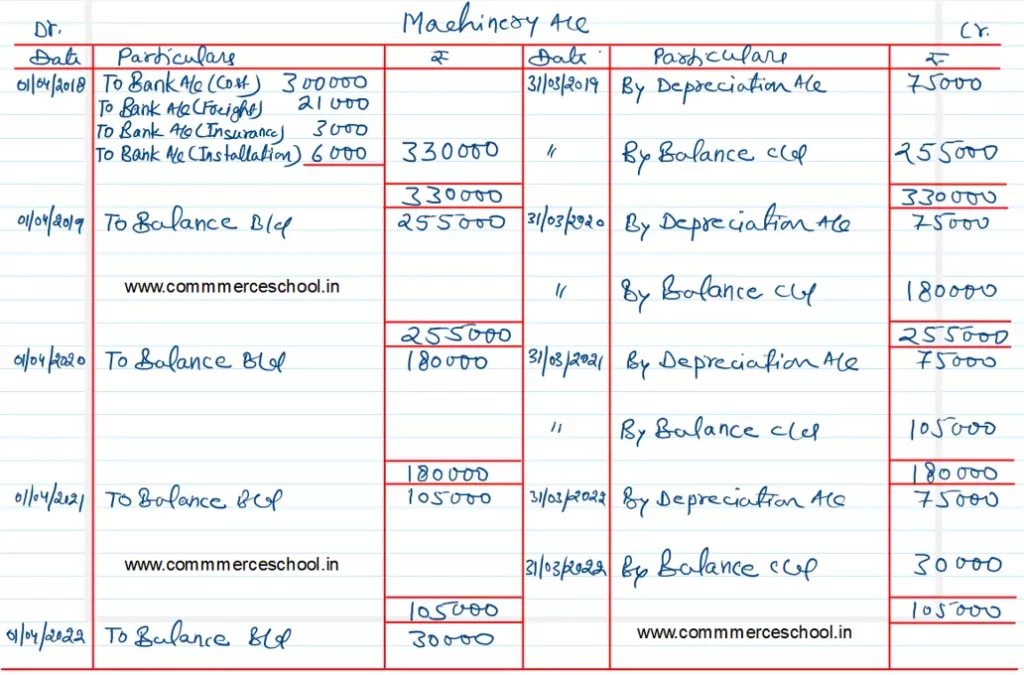 Machinery A/c
Dr. Cr.
Date Particulars ₹ Date Particulars ₹
01/04/2018 To Bank A/c (Cost) 300000 31/03/2019 By Depreciation A/c 75000
To Bank A/c (Freight) 21000
To Bank A/c (Insurance) 3000
To Bank A/c (Installation) 6000 330000 〃 By Balance c/d 255000
330000 330000
01/04/2019 To Balance B/d 255000 31/03/2020 By Depreciation A/c 75000
www.commmerceschool.in 〃 By Balance c/d 180000
255000 255000
01/04/2020 To Balance B/d 180000 31/03/2021 By Depreciation A/c 75000
〃 By Balance c/d 105000
180000 180000
01/04/2021 To Balance B/d 105000 31/03/2022 By Depreciation A/c 75000
www.commmerceschool.in 31/03/2022 By Balance c/d 30000
105000 105000
01/04/2022 To Balance B/d 30000 www.commmerceschool.in